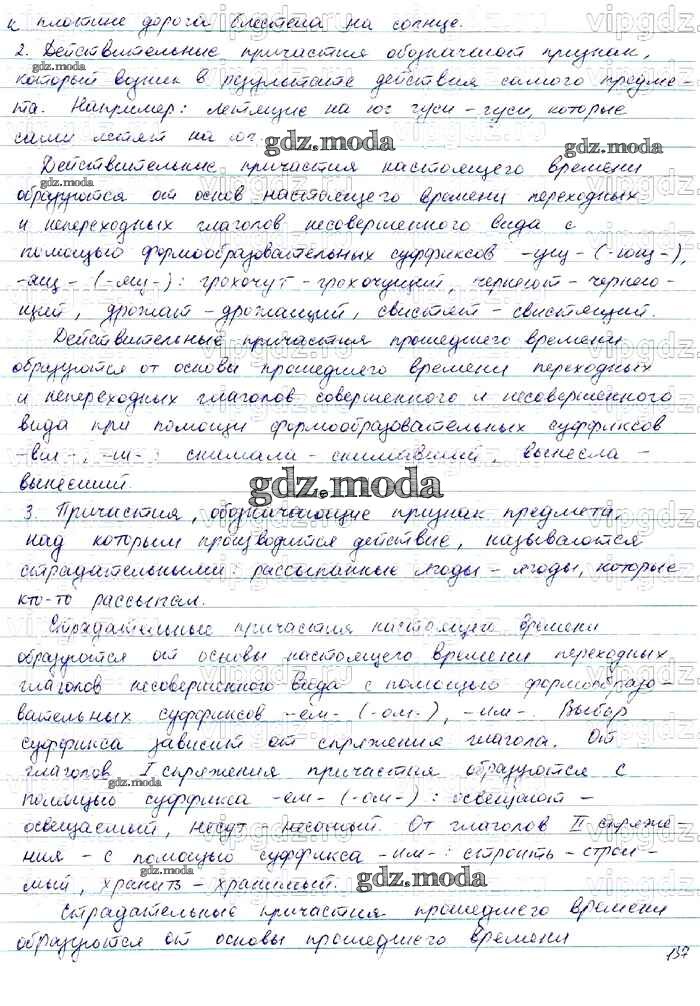 к плотине дорога блестела на солнце.
2. Действительные причастия обозначают признак,
который возник в результате действия самого предме-
та. Например: летящие на юг гуси – гуси, которые
сами летят на юг
gdz.moda
Действительные причастия настоящего времени
образуются от основ настоящего времени переходных
и непереходных глаголов несовершенного вида с
помощью формообразовательных суффиксов -ущ- (-ющ-),
-ащ- (-ящ-): грохочут – грохочущий, чернеют – чернею-
щий, дрожат – дрожащий, свистят – свистящий.
Действительные причастия прошедшего времени
образуются от основы прошедшего времени переходных
и непереходных глаголов совершенного и несовершенного
вида при помощи формообразовательных суффиксов
-вш-, -ш-: снимали – снимавший, вынесла –
вынесший.
gdz.moda
3. Причастия, обозначающие признак предмета,
над которым производится действие, называются
страдательными: рассыпанные ягоды – ягоды, которые
кто-то рассыпал.
Страдательные причастия настоящего времени
образуются от основы настоящего времени переходных
глаголов несовершенного вида с помощью формообразо-
вательных суффиксов -ем- (-ом-), -им-. Выбор
суффикса зависит от спряжения глагола. От
глаголов I спряжения причастия образуются с
помощью суффикса -ем- (-ом-): освещают –
освещаемый, несут – несомый. От глаголов II спряже-
ния – с помощью суффикса -им-: строить – строи-
мый, хранить – хранимый.
gdz.moda
Страдательные причастия прошедшего времени
образуются от основы прошедшего времени
137